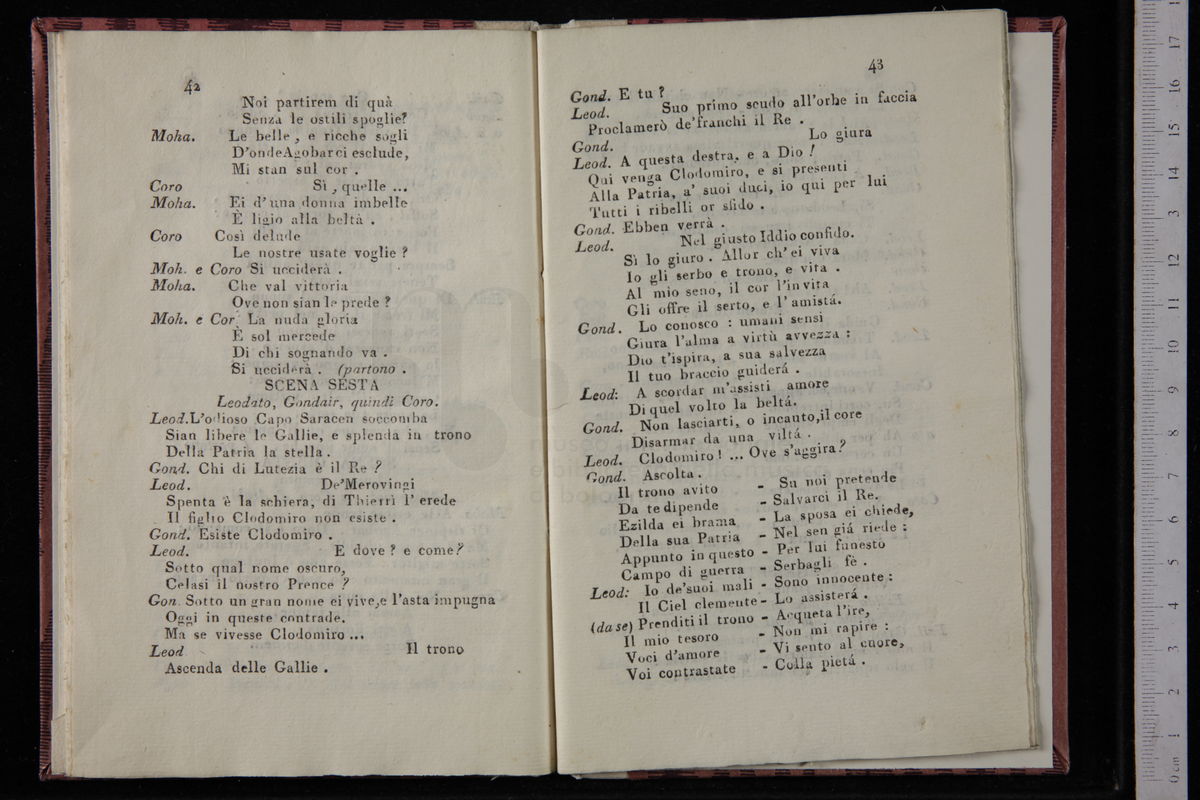 42
Noi partirem di quà
Senza le ostili spoglie?
Moha. Le belle, e ricche sogli
D'ondeAgobar ci esclude,
Mi stan sul cor.
Coro Sì, quelle ...
Moha. Ei d'una donna imbelle
È ligio alla beltà.
Coro Così delude
Le nostre usate voglie?
Moh. e Coro Si ucciderà.
Moha. Che val vittoria
Ove non sian le prede?
Moh. e Cor. La nuda gloria
È sol mercede
Di chi sognando va.
Si ucciderà. (partono.
SCENA SESTA
Leodato, Gondair, quindi Coro.
Leod.L'odioso Capo Saracen soccomba
Sian libere le Gallie, e splenda in trono
Della Patria la stella.
Gond. Chi di Lutezia è il Re?
Leod. De'Merovingi
Spenta è la schiera, di Thierri l'erede
Il figlio Clodomiro non esiste.
Gond. Esiste Clodomiro.
Leod. E dove? e come?
Sotto qual nome oscuro,
Celasi il nostro Prence?
Gon. Sotto un gran nome ei vive,e l'asta impugna
Oggi in queste contrade.
Ma se vivesse Clodomiro ...
Leod Il trono
Ascenda delle Gallie.
43
Gond. E tu?
Leod. Suo primo scudo all'orbe in faccia
Proclamerò de'franchi il Re.
Gond. Lo giura
Leod. A questa destra, e a Dio!
Qui venga Clodomiro, e si presenti
Alla Patria, a' suoi duci, io qui per lui
Tutti i ribelli or sfido.
Gond. Ebben verrà.
Leod. Nel giusto Iddio confido.
Sì lo giuro. Allor ch'ei viva
Io gli serbo e trono, e vita.
Al mio seno, il cor l'invita
Gli offre il serto, e l'amistá.
Gond. Lo conosco: umani sensi
Giura l'alma a virtù avvezza:
Dio t'ispira, a sua salvezza
Il tuo braccio guiderá.
Leod: A scordar m'assisti amore
Di quel volto la beltá.
Gond. Non lasciarti, o incauto,il core
Disarmar da una viltá.
Leod. Clodomiro! ... Ove s'aggira?
Gond. Ascolta.
Il trono avito - Su noi pretende
Da te dipende - Salvarci il Re.
Ezilda ei brama - La sposa ei chiede,
Della sua Patria - Nel sen giá riede:
Appunto in questo - Per lui funesto
Campo di guerra - Serbagli fè.
Leod: Io de'suoi mali - Sono innocente:
Il Ciel clemente - Lo assisterá.
(da se) Prenditi il trono - Acqueta l'ire,
Il mio tesoro - Non mi rapire:
Voci d'amore - Vi sento al cuore,
Voi contrastate - Colla pietá.